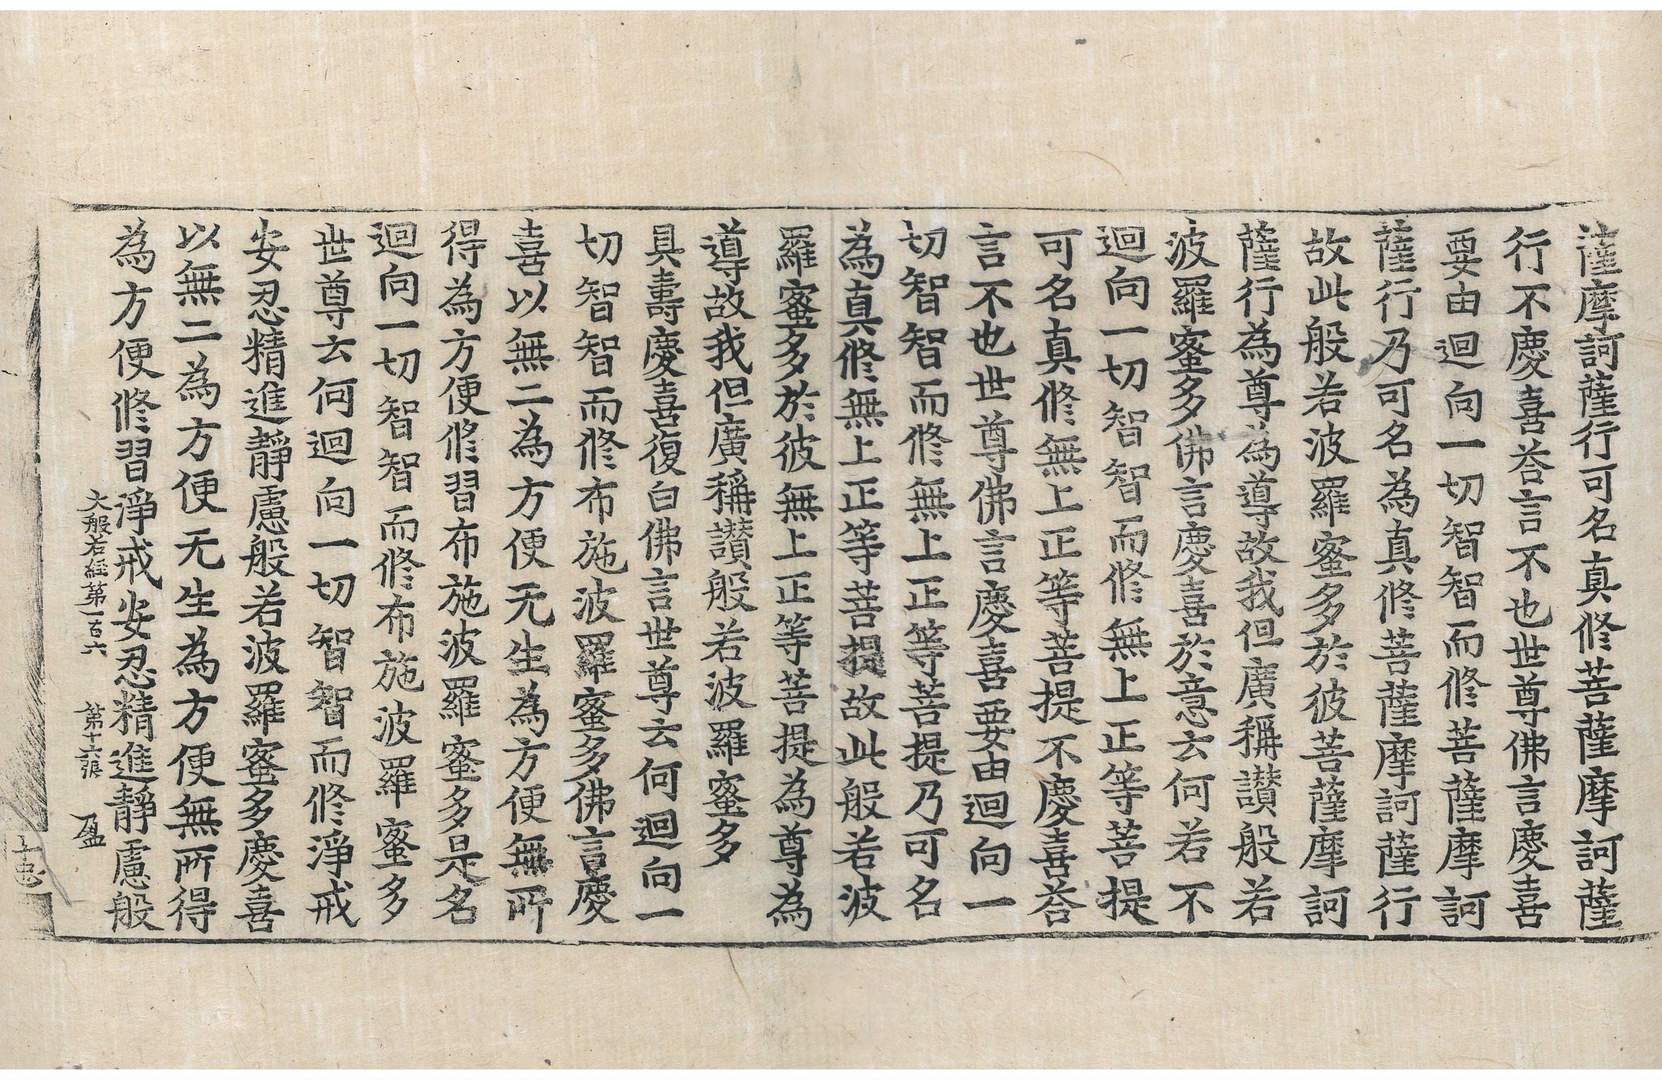 薩摩訶薩行可名真修菩薩摩訶薩
行不慶喜荅言不也世尊佛言慶喜
要由迴向一切智智而修菩薩摩訶
薩行乃可名為真修菩薩摩訶薩行
故此般若波羅蜜多於彼菩薩摩訶
薩行為尊為導故我但廣稱讃般若
波羅蜜多佛言慶喜於意云何若不
迴向一切智智而修無上正等菩提
可名真修無上正等菩提不慶喜荅
言不也世尊佛言慶喜要由迴向一
切智智而修無上正等菩提乃可名
為真修無上正等菩提故此般若波
羅蜜多於彼無上正等菩提為尊為
導故我但廣稱讃般若波羅蜜多
具壽慶喜復白佛言世尊云何迴向一
切智智而修布施波羅蜜多佛言慶
喜以無二為方便无生為方便無所
得為方便修習布施波羅蜜多是名
迴向一切智智而修布施波羅蜜多
世尊云何迴向一切智智而修淨戒
安忍精進靜慮般若波羅蜜多慶喜
以無二為方便无生為方便無所得
為方便修習淨戒安忍精進靜慮般
大般若經第一百六 第十六張 盈